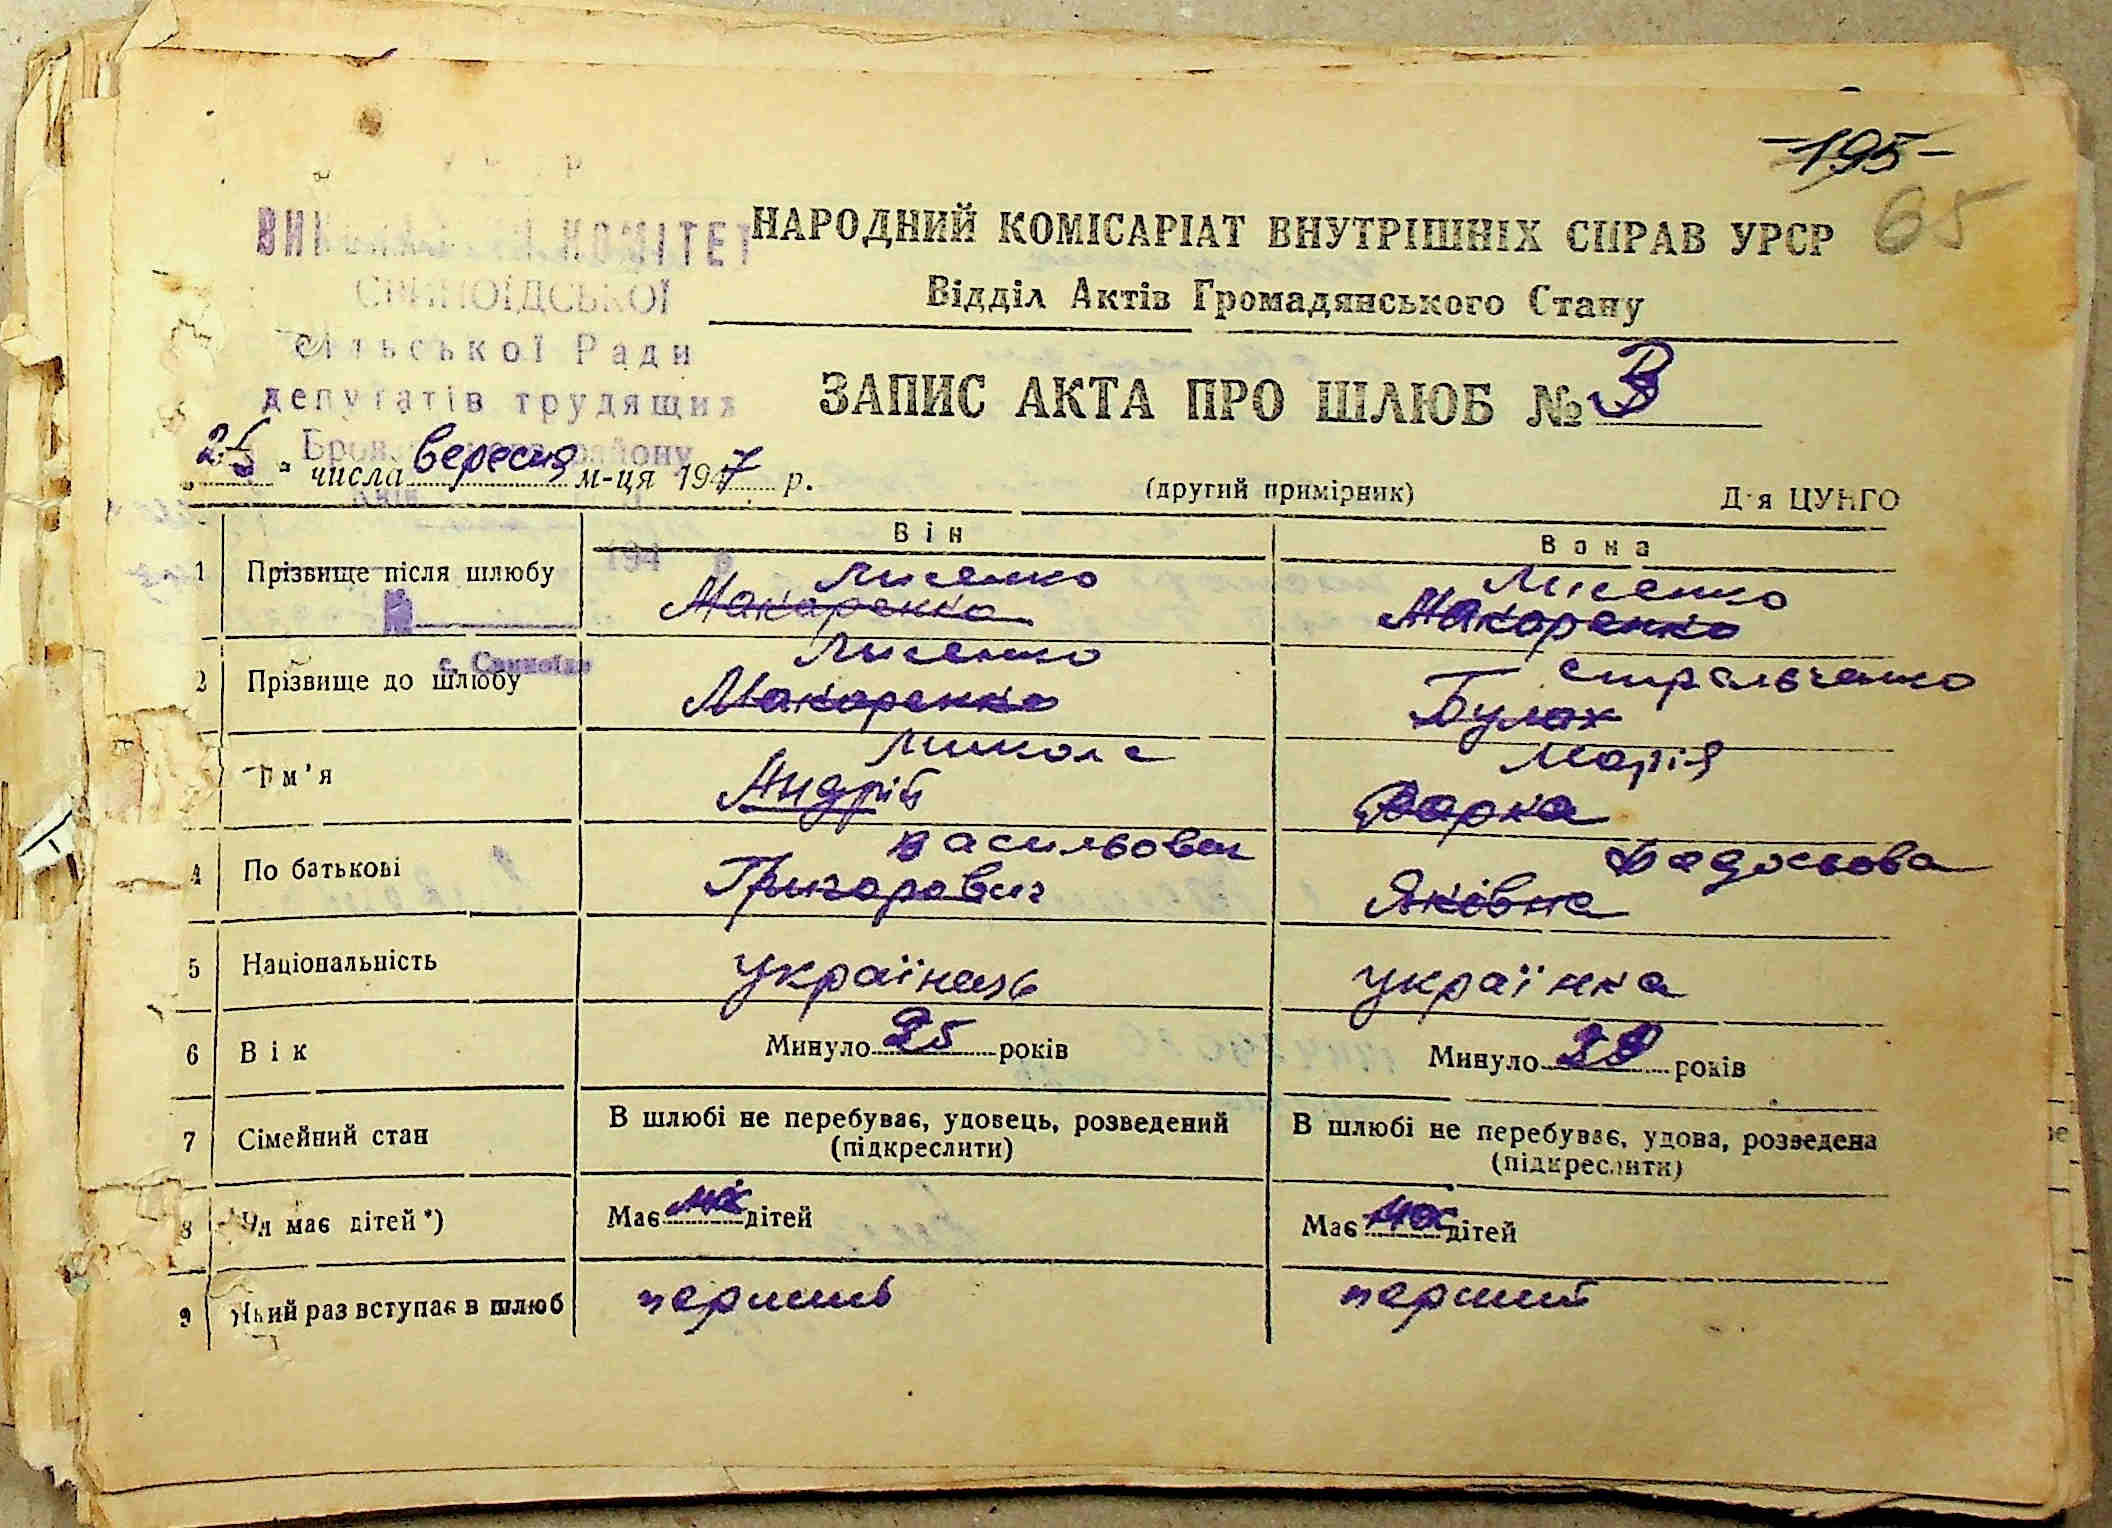 -195-
65
ВИКОНАВЧИЙ КОМІТЕТ
СВИНОЇДСЬКОЇ
сільської Ради
депутатів трудящих
району
НАРОДНИЙ КОМІСАРІАТ ВНУТРІШНІХ СПРАВ УРСР
Відділ Актів Громадянського Стану
ЗАПИС АКТА ПРО ШЛЮБ №
„25" числа вересня м-ця 1947 р.
(другий примірник)
Для ЦУНГО
Він
Вона
1 Прізвище після шлюбу
Лисенко
Макаренко
Лисенко
Макаренко
с. Свиноїди
2 Прізвище до шлюбу
Лисенко
Макаренко
Стрельченко
Булах
Ім'я
Микола
Андрій
Марія
Варка
4 По батькові
Васильович
Григорович
Федосьова
Яківна
5 Національність
українець
українка
6 Вік
Минуло 25 років
Минуло років
7 Сімейний стан
В шлюбі не перебуває, удовець, розведений
(підкреслити)
В шлюбі не перебуває, удова, розведена
(підкреслити)
8 Чи має дітей*)
Має дітей
Має дітей
9 Який раз вступає в шлюб
перший
перший